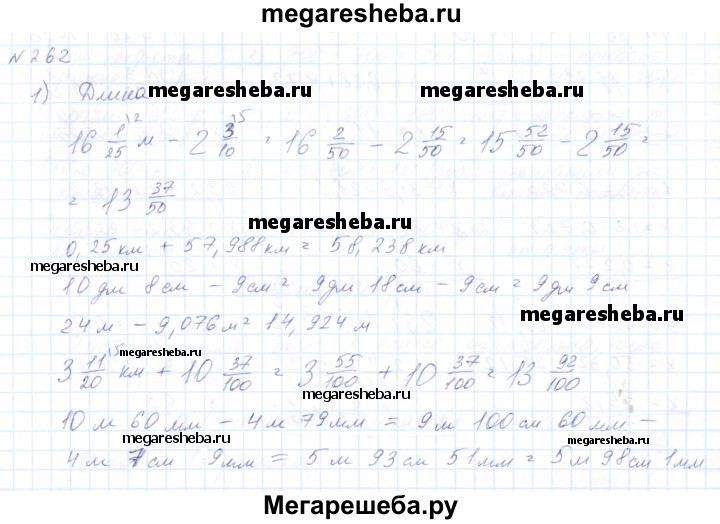 megaresheba.ru
№262
1) Длина megaresheba.ru megaresheba.ru
16 1/25 \2 м - 2 3/10 \5 = 16 2/50 - 2 15/50 = 15 52/50 - 2 15/50 =
= 13 37/50
megaresheba.ru
0,25 км + 57,988 км = 58,238 км
megaresheba.ru
10 дм 8 см - 9 см = 9 дм 18 см - 9 см = 9 дм 9 см
megaresheba.ru
24 м - 9,076 м = 14,924 м
megaresheba.ru
3 11/20 \5 км + 10 37/100 = 3 55/100 + 10 37/100 = 13 92/100
megaresheba.ru
10 м 60 мм - 4 м 79 мм = 9 м 100 см 60 мм -
megaresheba.ru megaresheba.ru
4 м 7 см 9 мм = 5 м 93 см 51 мм = 5 м 98 см 1 мм
Мегарешеба.ру